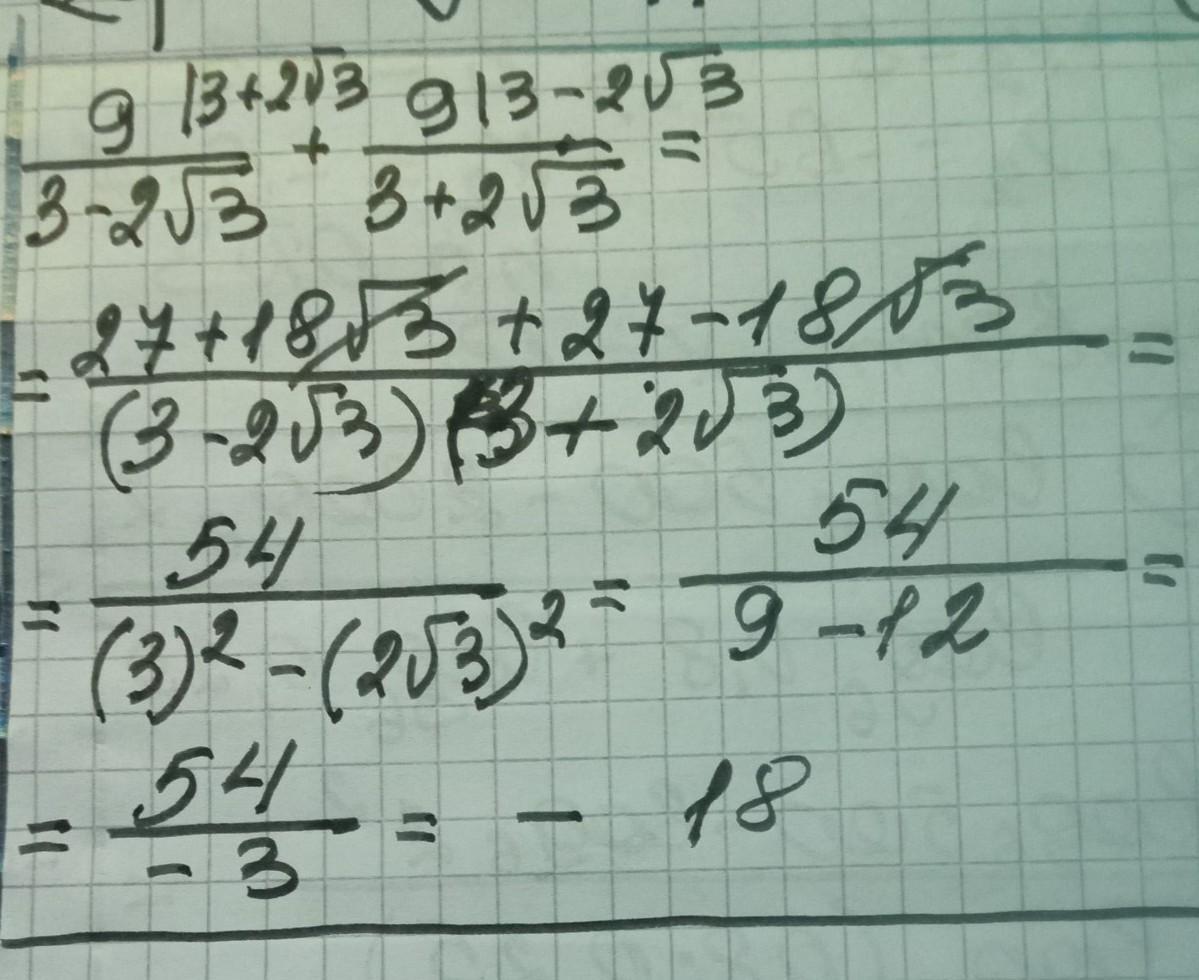 9 |3+2√3 + 9|3-2√3 =
3-2√3 3+2√3
= 27+18√3 + 27-18√3 =
(3-2√3)(3+2√3)
= 54 = 54 =
(3)²-(2√3)² 9-12
= 54 = - 18
-3